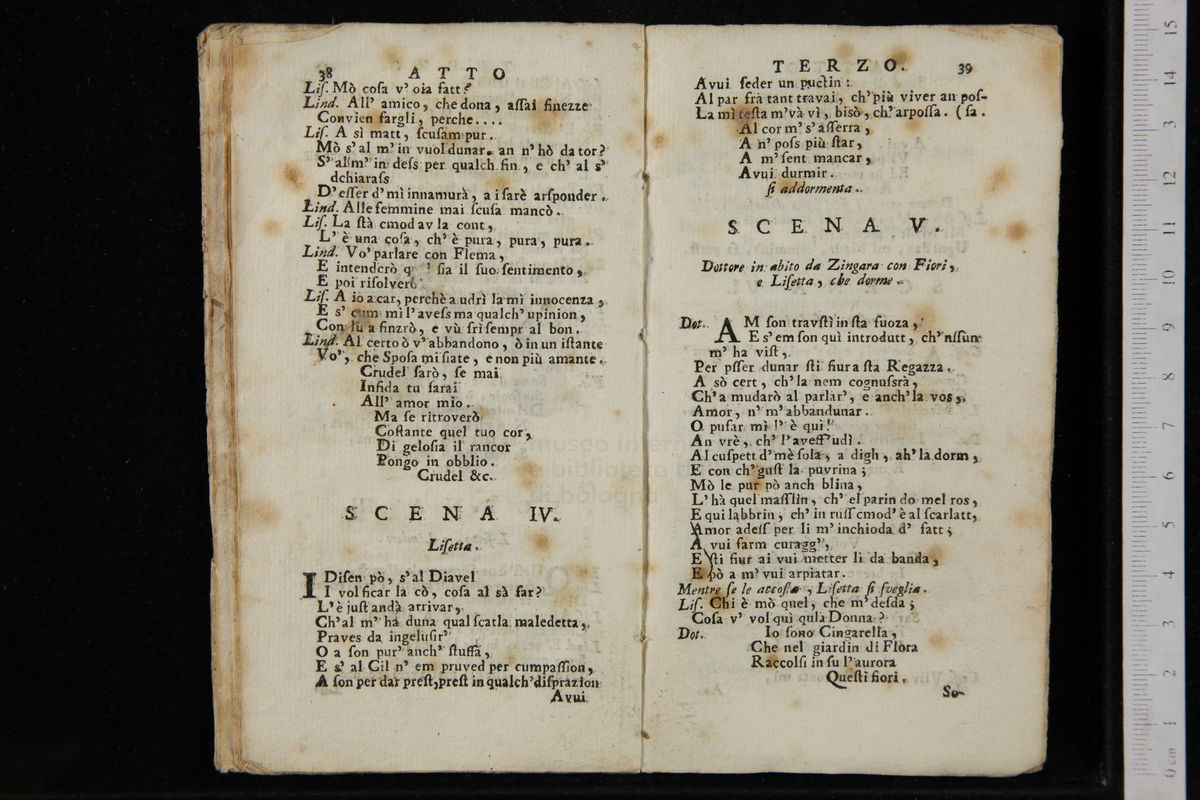 38 ATTO
Liſ. Mò coſa v' oia fatt?
Lind. All' amico, che dona, aſſai finezze
Convien fargli, perche....
Liſ. A sì matt, ſcuſam pur.
Mò s'al m' in vuol dunar. an n' hò da tor?
S' al m' in deſs per qualch fin, e ch' al s'
dchiaraſs
D' eſſer d' mì innamurà, a i farè arſponder.
Lind. Alle femmine mai ſcuſa mancò.
Liſ. La ſtà cmod av la cont,
L' è una coſa, ch' è pura, pura, pura.
Lind. Vo' parlare con Flema,
E intenderò ſia il ſuo ſentimento,
E poi riſolverò
Liſ. A io a car, perchè a udrì la mì innocenza,
E s' cum mì l'aveſs ma qualch' upinion,
Con lù a finzrò, e vù ſrì ſempr al bon.
Lind. Al certo ò v' abbandono, ò in un iſtante
Vo', che Spoſa mi ſiate, e non più amante.
Crudel ſarò, ſe mai
Infida tu ſarai
All' amor mio.
Ma ſe ritroverò
Coſtante quel tuo cor,
Di geloſia il rancor
Pongo in obblio.
Crudel &c.
SCENA IV.
Liſetta.
I Diſen pò, s'al Diavel
I vol ficar la cò, coſa al sà far?
L'è juſt andà arrivar,
Ch'al m' hà duna qual ſcatla maledetta,
Praves da ingeluſir'
O a ſon pur' anch' ſtuffa,
E s' al Cil n' em pruved per cumpaſſion,
A ſon per dar preſt, preſt in qualch' diſprazion
Avui
TERZO. 39
Avui ſeder un puctin:
Al par frà tant travai, ch' più viver an poſ-
La mì teſta m'và vì, bisò, ch' arpoſſa. (ſa.
Al cor m' s' aſſerra,
A n' poſs più ſtar,
A m' ſent mancar,
Avui durmir.
ſi addormenta.
SCENA V.
Dottore in abito da Zingara con Fiori,
e Liſetta, che dorme.
Dot. A M ſon travſtì in ſta fuoza,
E s' em ſon quì introdutt, ch' nſſun
m' ha viſt,
Per pſſer dunar ſti fiur a ſta Regazza.
A sò cert, ch' la nem cognuſsrà,
Ch' a mudarò al parlar', e anch' la vos,
Amor, n' m' abbandunar.
O puſar mì l' è quì!
An vrè, ch' l' aveſſ' udì.
Al cuſpett d' mè ſola, a digh, ah' la dorm,
E con ch' guſt la puvrina;
Mò le pur pò anch blina,
L' hà quel maſſlin, ch' el par in do mel ros,
E qui labbrin, ch' in ruſſ cmod' è al ſcarlatt,
Amor adeſſ per lì m' inchioda d' fatt;
A vui farm curagg',
E ſti fiur ai vui metter lì da banda,
E pò a m' vui arpiatar.
Mentre ſe le accoſta, Liſetta ſi ſveglia.
Liſ. Chi è mò quel, che m' deſda;
Coſa v' vol quì qula Donna?
Dot. Io ſono Cingarella,
Che nel giardin di Flora
Raccolſi in ſu l'aurora
Queſti fiori.
So-